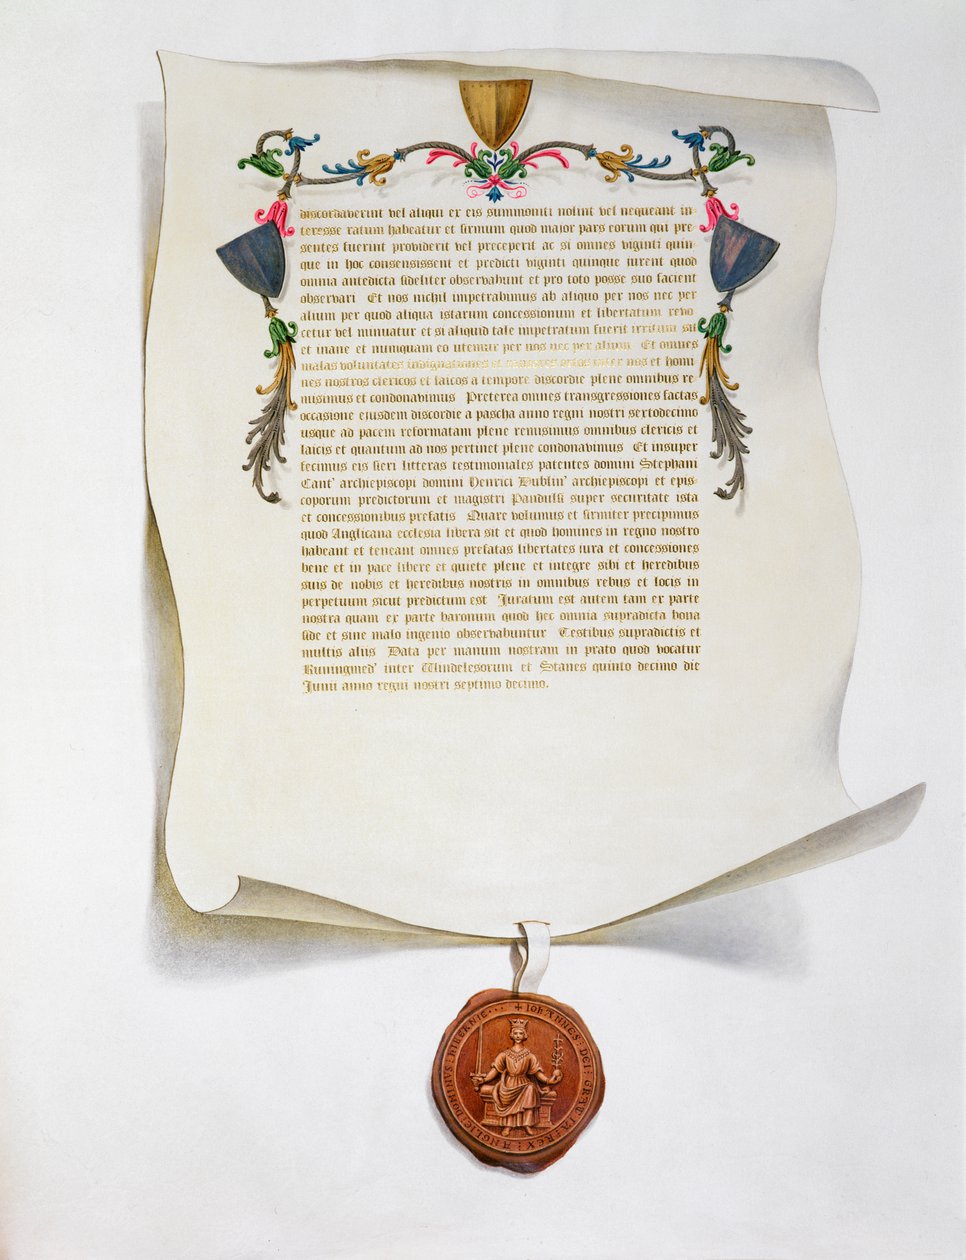 discordaverint vel aliqui ex eis summoniti nolint vel nequeant in-
teresse ratum habeatur et firmum quod major pars eorum qui pre-
sentes fuerint providerit vel preceperit ac si omnes viginti quin-
que in hoc consensissent et predicti viginti quinque jurent quod
omnia antedicta fideliter observabunt et pro toto posse suo facient
observari Et nos nichil impetrabimus ab aliquo per nos nec per
alium per quod aliqua istarum concessionum et libertatum revo
cetur vel minuatur et si aliquid tale impetratum fuerit irritum sit
et inane et nunquam eo utemur per nos nec per alium Et omnes
malas voluntates indignationes et rancores ortos inter nos et homi
nes nostros clericos et laicos a tempore discordie plene omnibus re-
misimus et condonavimus Preterea omnes transgressiones factas
occasione ejusdem discordie a pascha anno regni nostri sextodecimo
usque ad pacem reformatam plene remisimus omnibus clericis et
laicis et quantum ad nos pertinet plene condonavimus Et insuper
fecimus eis fieri litteras testimoniales patentes domini Stephani
Cant' archiepiscopi domini Henrici Dublin' archiepiscopi et epis-
coporum predictorum et magistri Pandulfi super securitate ista
et concessionibus prefatis Quare volumus et firmiter precipimus
quod Anglicana ecclesia libera sit et quod homines in regno nostro
habeant et teneant omnes prefatas libertates iura et concessiones
bene et in pace libere et quiete plene et integre sibi et heredibus
suis de nobis et heredibus nostris in omnibus rebus et locis in
perpetuum sicut predictum est Juratum est autem tam ex parte
nostra quam ex parte baronum quod hec omnia supradicta bona
fide et sine malo ingenio observabuntur Testibus supradictis et
multis aliis Data per manum nostram in prato quod vocatur
Runingmed' inter Windelesorum et Stanes quinto decimo die
Junii anno regni nostri septimo decimo.
+ IOHANNES : DEI : GRATIA : REX : ANGLIE : DOMINVS : HIBERNIE